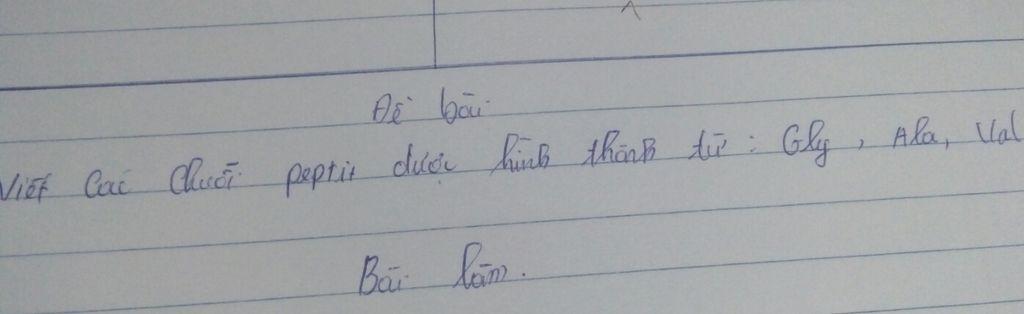 Đề bài
Viết các chuỗi peptit được hình thành từ : Gly, Ala, Val
Bài làm.